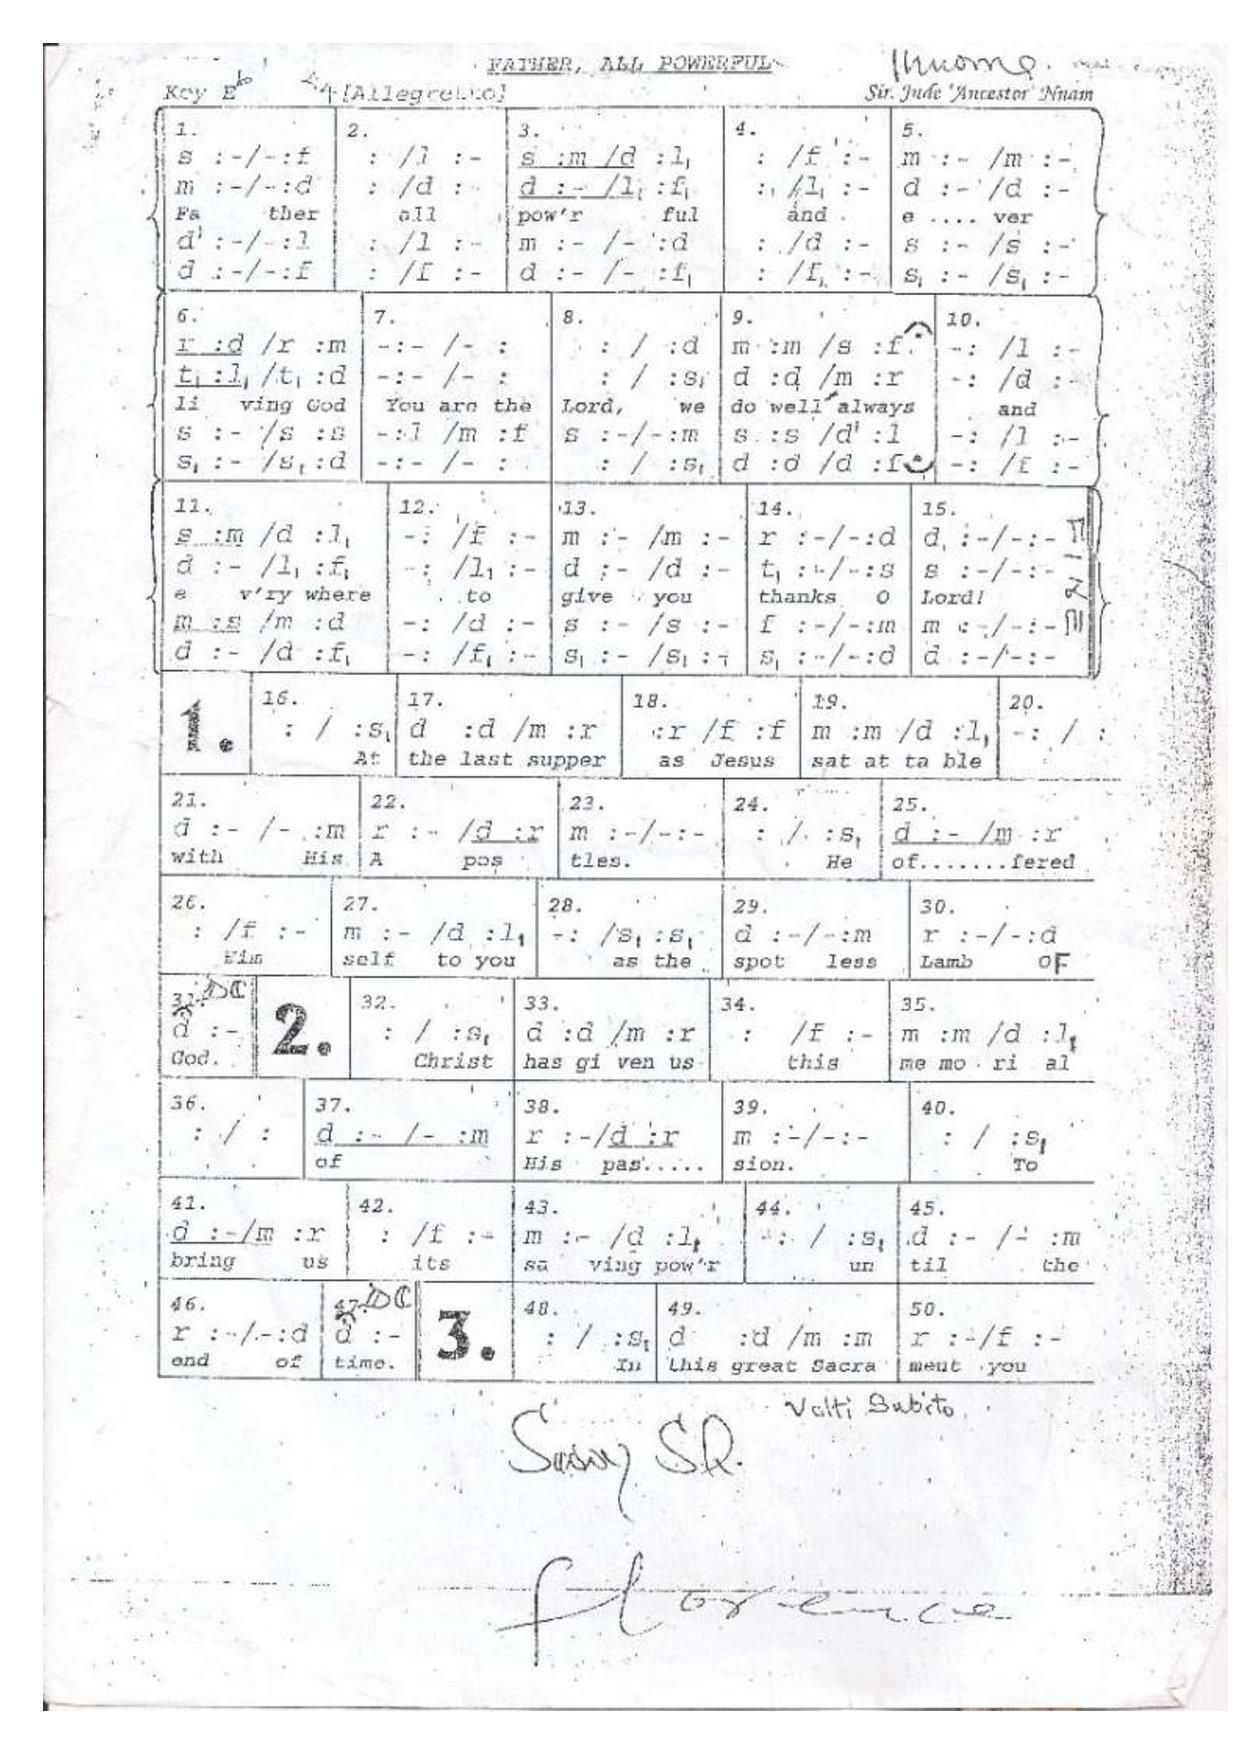 FATHER, ALL POWERFUL
Key E♭ 4/4 [Allegretto]
Sir. Jude 'Ancestor' Nnam
1. 2. 3. 4. 5.
s :-/-:f : /l :- s :m /d :l₁ : /f :- m :- /m :-
m :-/-:d : /d :- d :- /l₁ :f₁ : /l₁ :- d :- /d :-
Fa ther all pow'r ful and e .... ver
d' :-/-:l : /l :- m :- /- :d : /d :- s :- /s :-
d :-/-:f : /f :- d :- /- :f₁ : /f₁ :- s₁ :- /s₁ :-
6. 7. 8. 9. 10.
r :d /r :m -:- /- : : / :d m :m /s :f -: /l :-
t₁ :l₁ /t₁ :d -:- /- : : / :s₁ d :d /m :r -: /d :-
li ving God You are the Lord, we do well always and
s :- /s :s -:l /m :f s :-/-:m s :s /d' :l -: /l :-
s₁ :- /s₁ :d -:- /- : : / :s₁ d :d /d :f -: /f :-
11. 12. 13. 14. 15.
s :m /d :l₁ -: /f :- m :- /m :- r :-/-:d d :-/-:-
d :- /l₁ :f₁ -: /l₁ :- d :- /d :- t₁ :-/-:s s :-/-:-
e v'ry where to give you thanks O Lord!
m :s /m :d -: /d :- s :- /s :- f :-/-:m m :-/-:-
d :- /d :f₁ -: /f₁ :- s₁ :- /s₁ :- s₁ :-/-:d d :-/-:-
FINE
1. 16. 17. 18. 19. 20.
: / :s₁ d :d /m :r :r /f :f m :m /d :l₁ -: / :
At the last supper as Jesus sat at ta ble
21. 22. 23. 24. 25.
d :- /- :m r :- /d :r m :-/-:- : / :s₁ d :- /m :r
with His A pos tles. He of........fered
26. 27. 28. 29. 30.
: /f :- m :- /d :l₁ -: /s₁ :s₁ d :-/-:m r :-/-:d
Him self to you as the spot less Lamb OF
31. DC 2. 32. 33. 34. 35.
d :- : / :s₁ d :d /m :r : /f :- m :m /d :l₁
God. Christ has gi ven us this me mo ri al
36. 37. 38. 39. 40.
: / : d :- /- :m r :-/d :r m :-/-:- : / :s₁
of His pas..... sion. To
41. 42. 43. 44. 45.
d :-/m :r : /f :- m :- /d :l₁ -: / :s₁ d :- /- :m
bring us its sa ving pow'r un til the
46. 47. DC 3. 48. 49. 50.
r :-/-:d d :- : / :s₁ d :d /m :m r :-/f :-
end of time. In this great Sacra ment you
Volti Subito
Florence